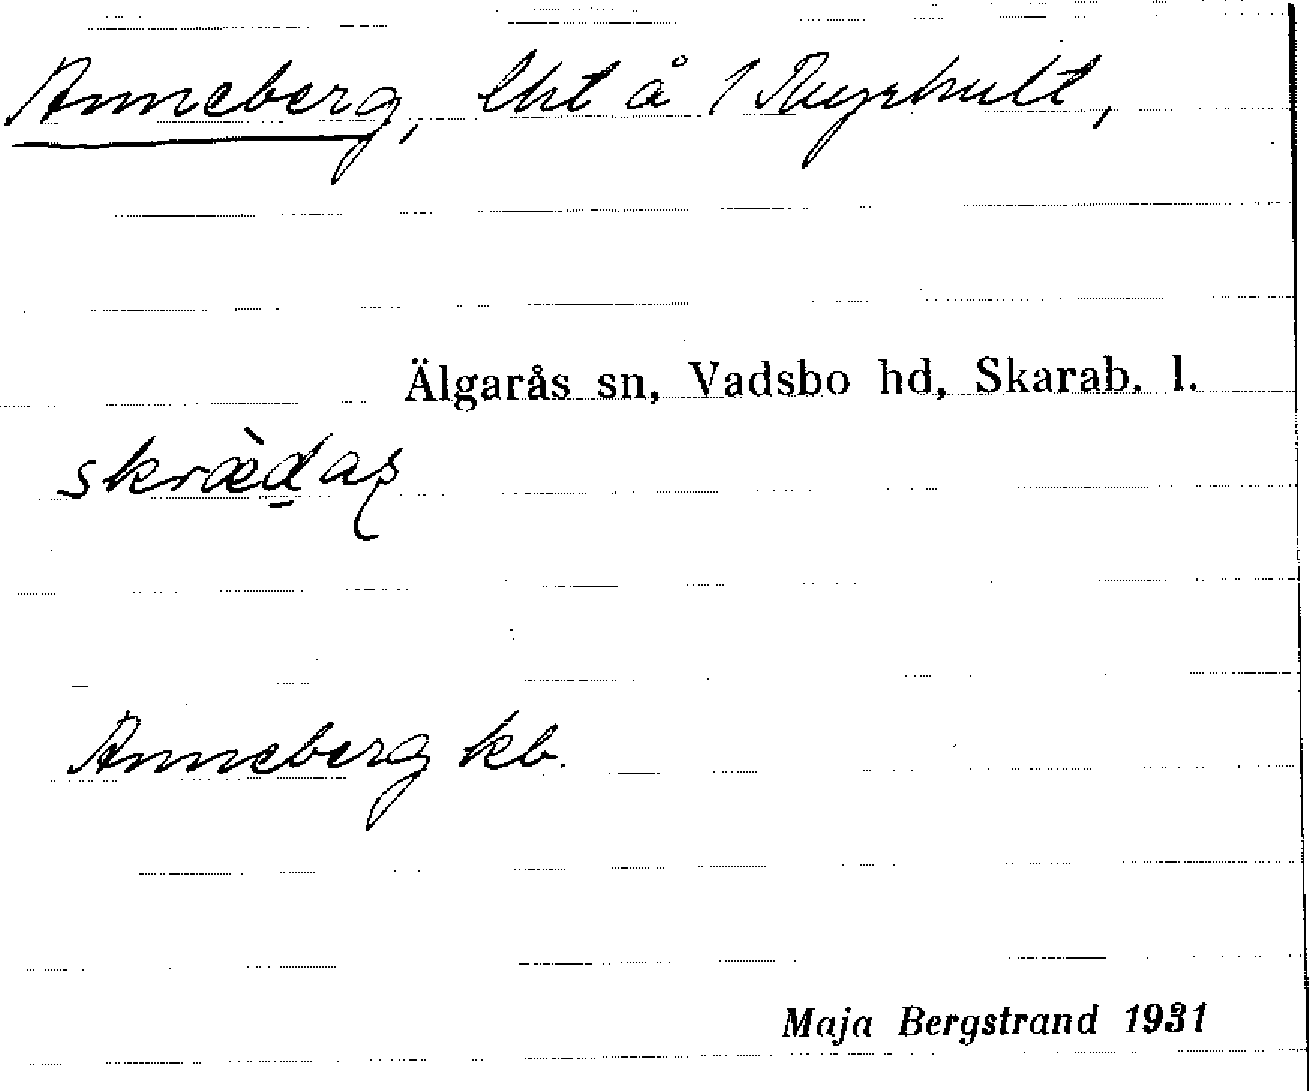 Anneberg, lht å 1 Ryrhult,
Älgarås sn, Vadsbo hd, Skarab. l.
skræ̀d̲aʂ
Anneberg kb.
Maja Bergstrand 1931